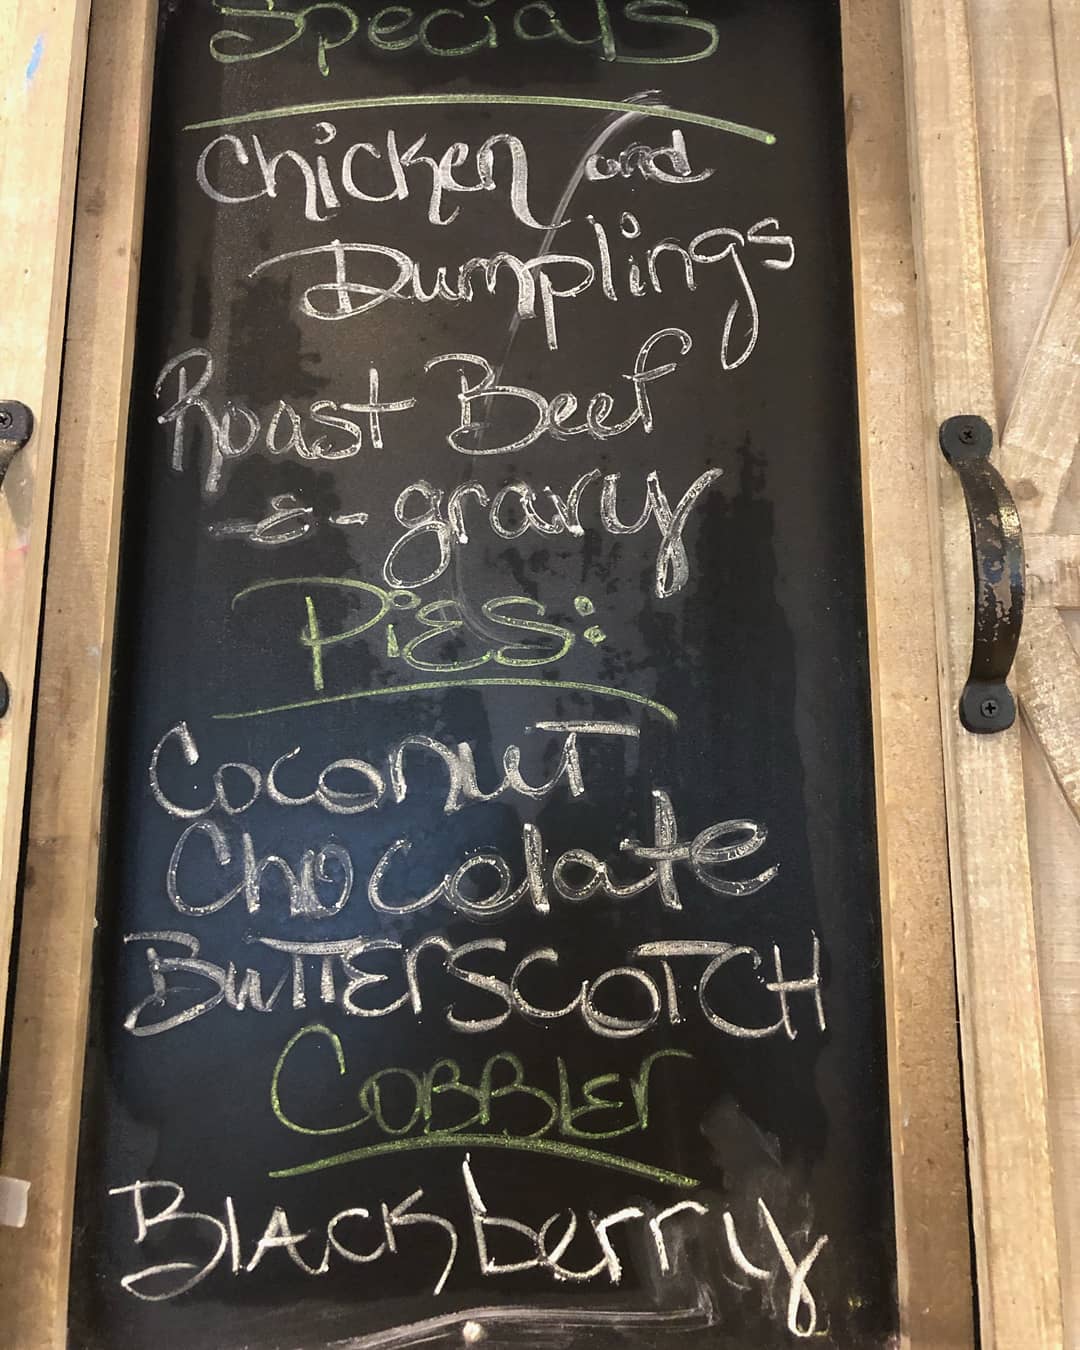 Specials
Chicken and
Dumplings
Roast Beef
-&- gravy
Pies:
Coconut
Chocolate
Butterscotch
Cobbler
Blackberry